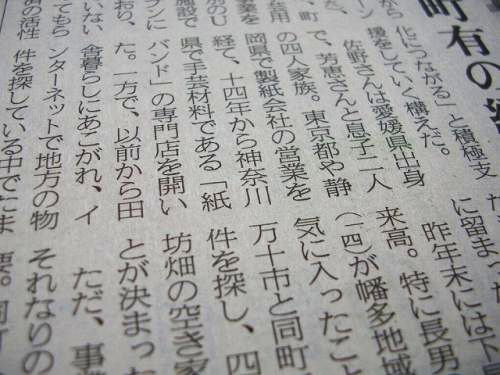 町有の
化につながる」と積極支
援をしていく構えだ。
佐野さんは愛媛県出身
で、芳恵さんと息子二人
の四人家族。東京都や静
岡県で製紙会社の営業を
経て、十四年から神奈川
県で手芸材料である「紙
バンド」の専門店を開い
た。一方で、以前から田
舎暮らしにあこがれ、イ
ンターネットで地方の物
件を探している中でたま
に留まった
昨年末には下
来高。特に長男
(一四)が幡多地域
気に入ったこと
万十市と同町
件を探し、四
坊畑の空き家
とが決まった
ただ、事
それなりの
から
ーン
町
業を
施設で
おり、
いない
てもら
活性